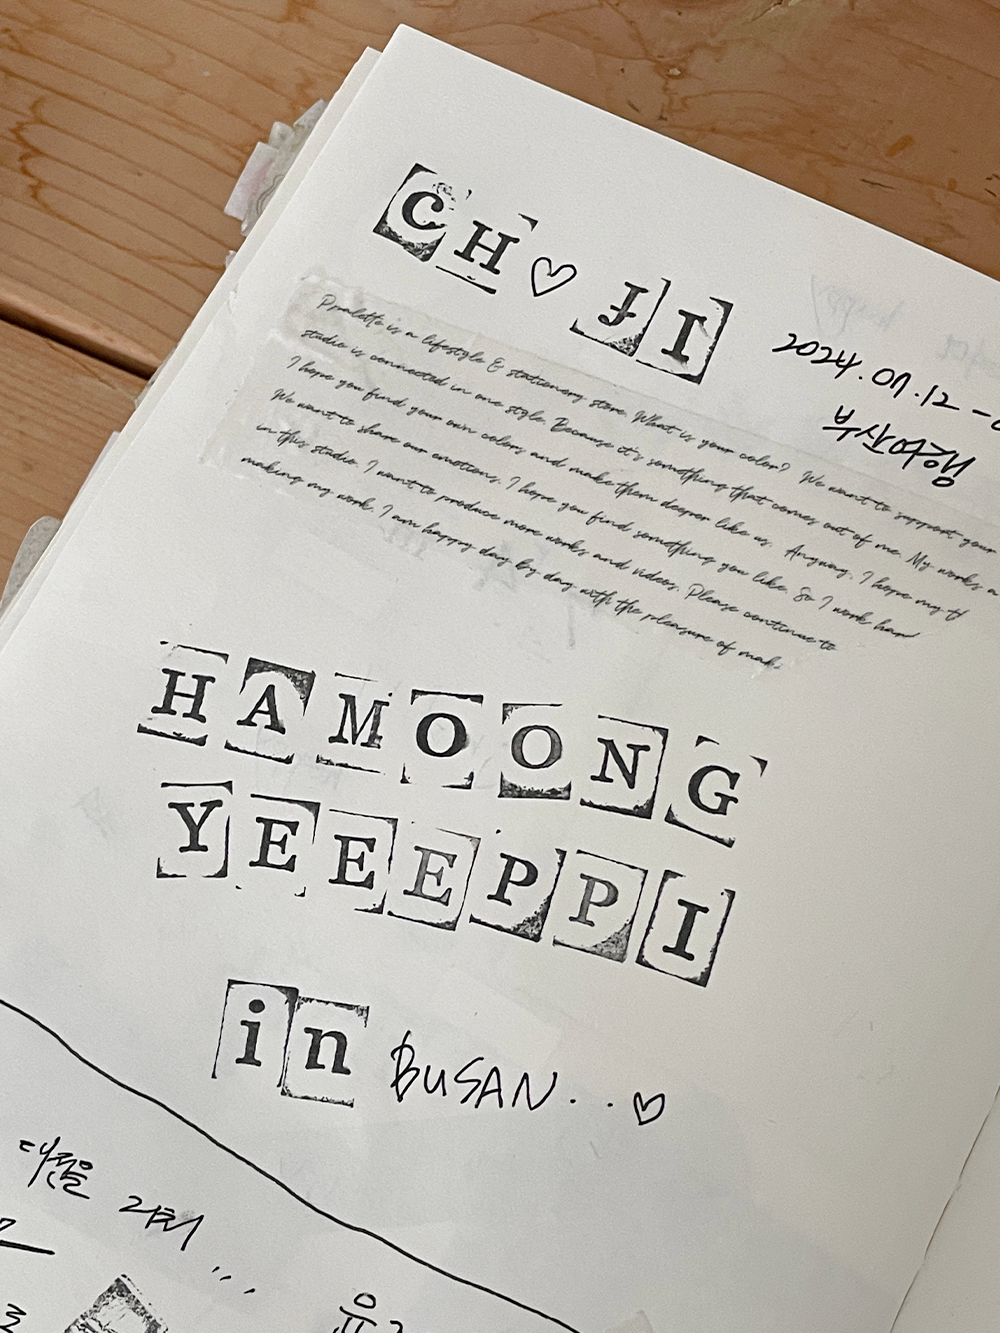 CH♡JI
2024.07.12 -
부산여행
Pralette is a lifestyle & stationery store. What is your color? We want to support your
studio is connected in one style. Because it's something that comes out of me. My works a
I hope you find your own colors and make them deeper like us. Anyway, I hope my
We want to share our emotions. I hope you find something you like. So I work har
in this studio. I want to produce more works and videos. Please continue to
making my work. I am happy day by day with the pleasure of mak
HAMOONG
YEEEPPI
in BUSAN..♡
대전을 거쳐...